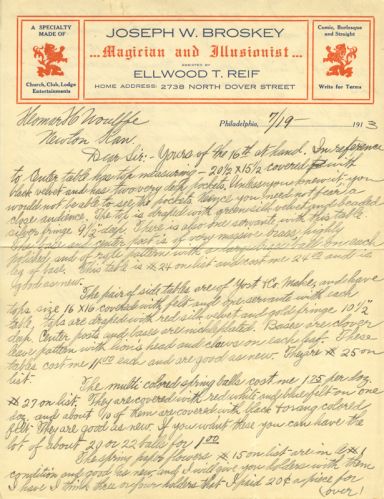 A SPECIALTY
MADE OF
Church, Club, Lodge
Entertainments
JOSEPH W. BROSKEY
...Magician and Illusionist...
ASSISTED BY
ELLWOOD T. REIF
HOME ADDRESS: 2738 NORTH DOVER STREET
Comic, Burlesque
and Straight
Write for Terms
Philadelphia, 7/19- 1913
Homar H Woulffe
Newton Kan.
Dear Sir:- Yours of the 16th at hand. In reference
to Center table has top measuring - 20½ x 15½ covered with
black velvet and has two very deep pockets. Unless you knew it you
would not be able to see the pockets hence you need not fear a
close audience. The top is draped with green silk velvet and beaded
silver fringe 9½ deep. There is also one servante with this table
The base and center part is of very massive brass, highly
polished and of rigid pattern with a ball on each
leg of base. This table is $24 on list and cost me 24.00 and is
good as new.
The pair of side tables are of Yost & Co. Make, and have
tops size 16 x 16 covered with felt and one servante with each
table, tops are draped with red silk velvet and gold fringe 10½"
deep. Center posts and bases are nickel plated. Bases are clover
leave pattern with lion's head and claws on each foot. These
tables cost me 11.50 each and are good as new. They are #25 on
list.
The multi colored spring balls cost me 1.75 per doz.
#27 on list. They are covered with red white and blue felt on one
doz. and about 9/10 of them are covered with black & orange colored
felt. They are good as new. If you want these you can have the
lot of about 20 or 22 balls for 1.00
The spring flowers #15 on list - are in A#1
condition and good as new, and I will give you holders with them
I have I think three or four holders that I paid 20¢ a piece for
(over)